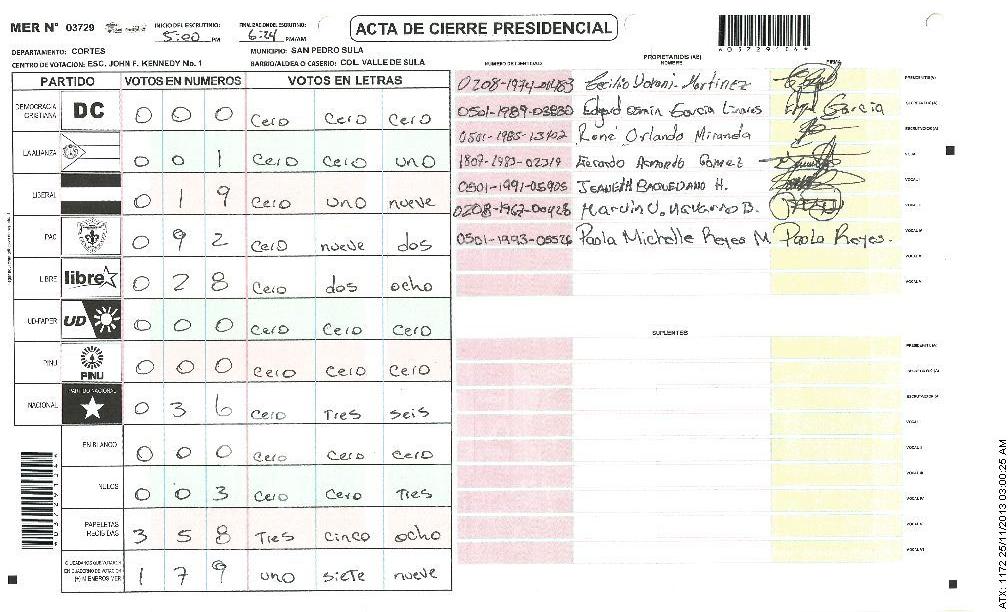 MER N° 03729
INICIO DEL ESCRUTINIO: 5:00 PM
FINALIZACION DEL ESCRUTINIO: 6:24 PM/AM
ACTA DE CIERRE PRESIDENCIAL
DEPARTAMENTO: CORTES
MUNICIPIO: SAN PEDRO SULA
CENTRO DE VOTACION: ESC. JOHN F. KENNEDY No. 1
BARRIO/ALDEA O CASERIO: COL. VALLE DE SULA
PARTIDO VOTOS EN NUMEROS VOTOS EN LETRAS
DEMOCRACIA CRISTIANA DC 0 0 0 Cero Cero Cero
LA ALIANZA 0 0 1 Cero Cero uno
LIBERAL 0 1 9 Cero uno nueve
PAC 0 9 2 Cero nueve dos
LIBRE libre 0 2 8 Cero dos ocho
UD-FAPER UD 0 0 0 Cero Cero Cero
PINU PINU 0 0 0 Cero Cero Cero
NACIONAL PARTIDO NACIONAL 0 3 6 Cero Tres seis
EN BLANCO 0 0 0 Cero Cero Cero
NULOS 0 0 3 Cero Cero Tres
PAPELETAS RECIBIDAS 3 5 8 Tres cinco ocho
CIUDADANOS QUE VOTARON EN CUADERNO DE VOTACION (+) MIEMBROS MER 1 7 9 uno siete nueve
PROPIETARIOS (AS)
NUMERO DE IDENTIDAD NOMBRE FIRMA
Martinez PRESIDENTE(A)
0501-1989-03830 Edgard Osmin Garcia Linares Edgar Garcia SECRETARIO(A)
0501-1985-13402 René Orlando Miranda ESCRUTADOR(A)
1807-1983-02319 Gerardo Armando Gomez VOCAL I
0501-1991-05905 JEANETH BAQUEDANO H.
0208-1962-00428 Marvin U. Navarro B.
0501-1993-05526 Paola Michelle Reyes M Paola Reyes.
SUPLENTES
PRESIDENTE(A)
SECRETARIO(A)
ESCRUTADOR(A)
ATX: 1172 25/11/2013 03:00:25 AM